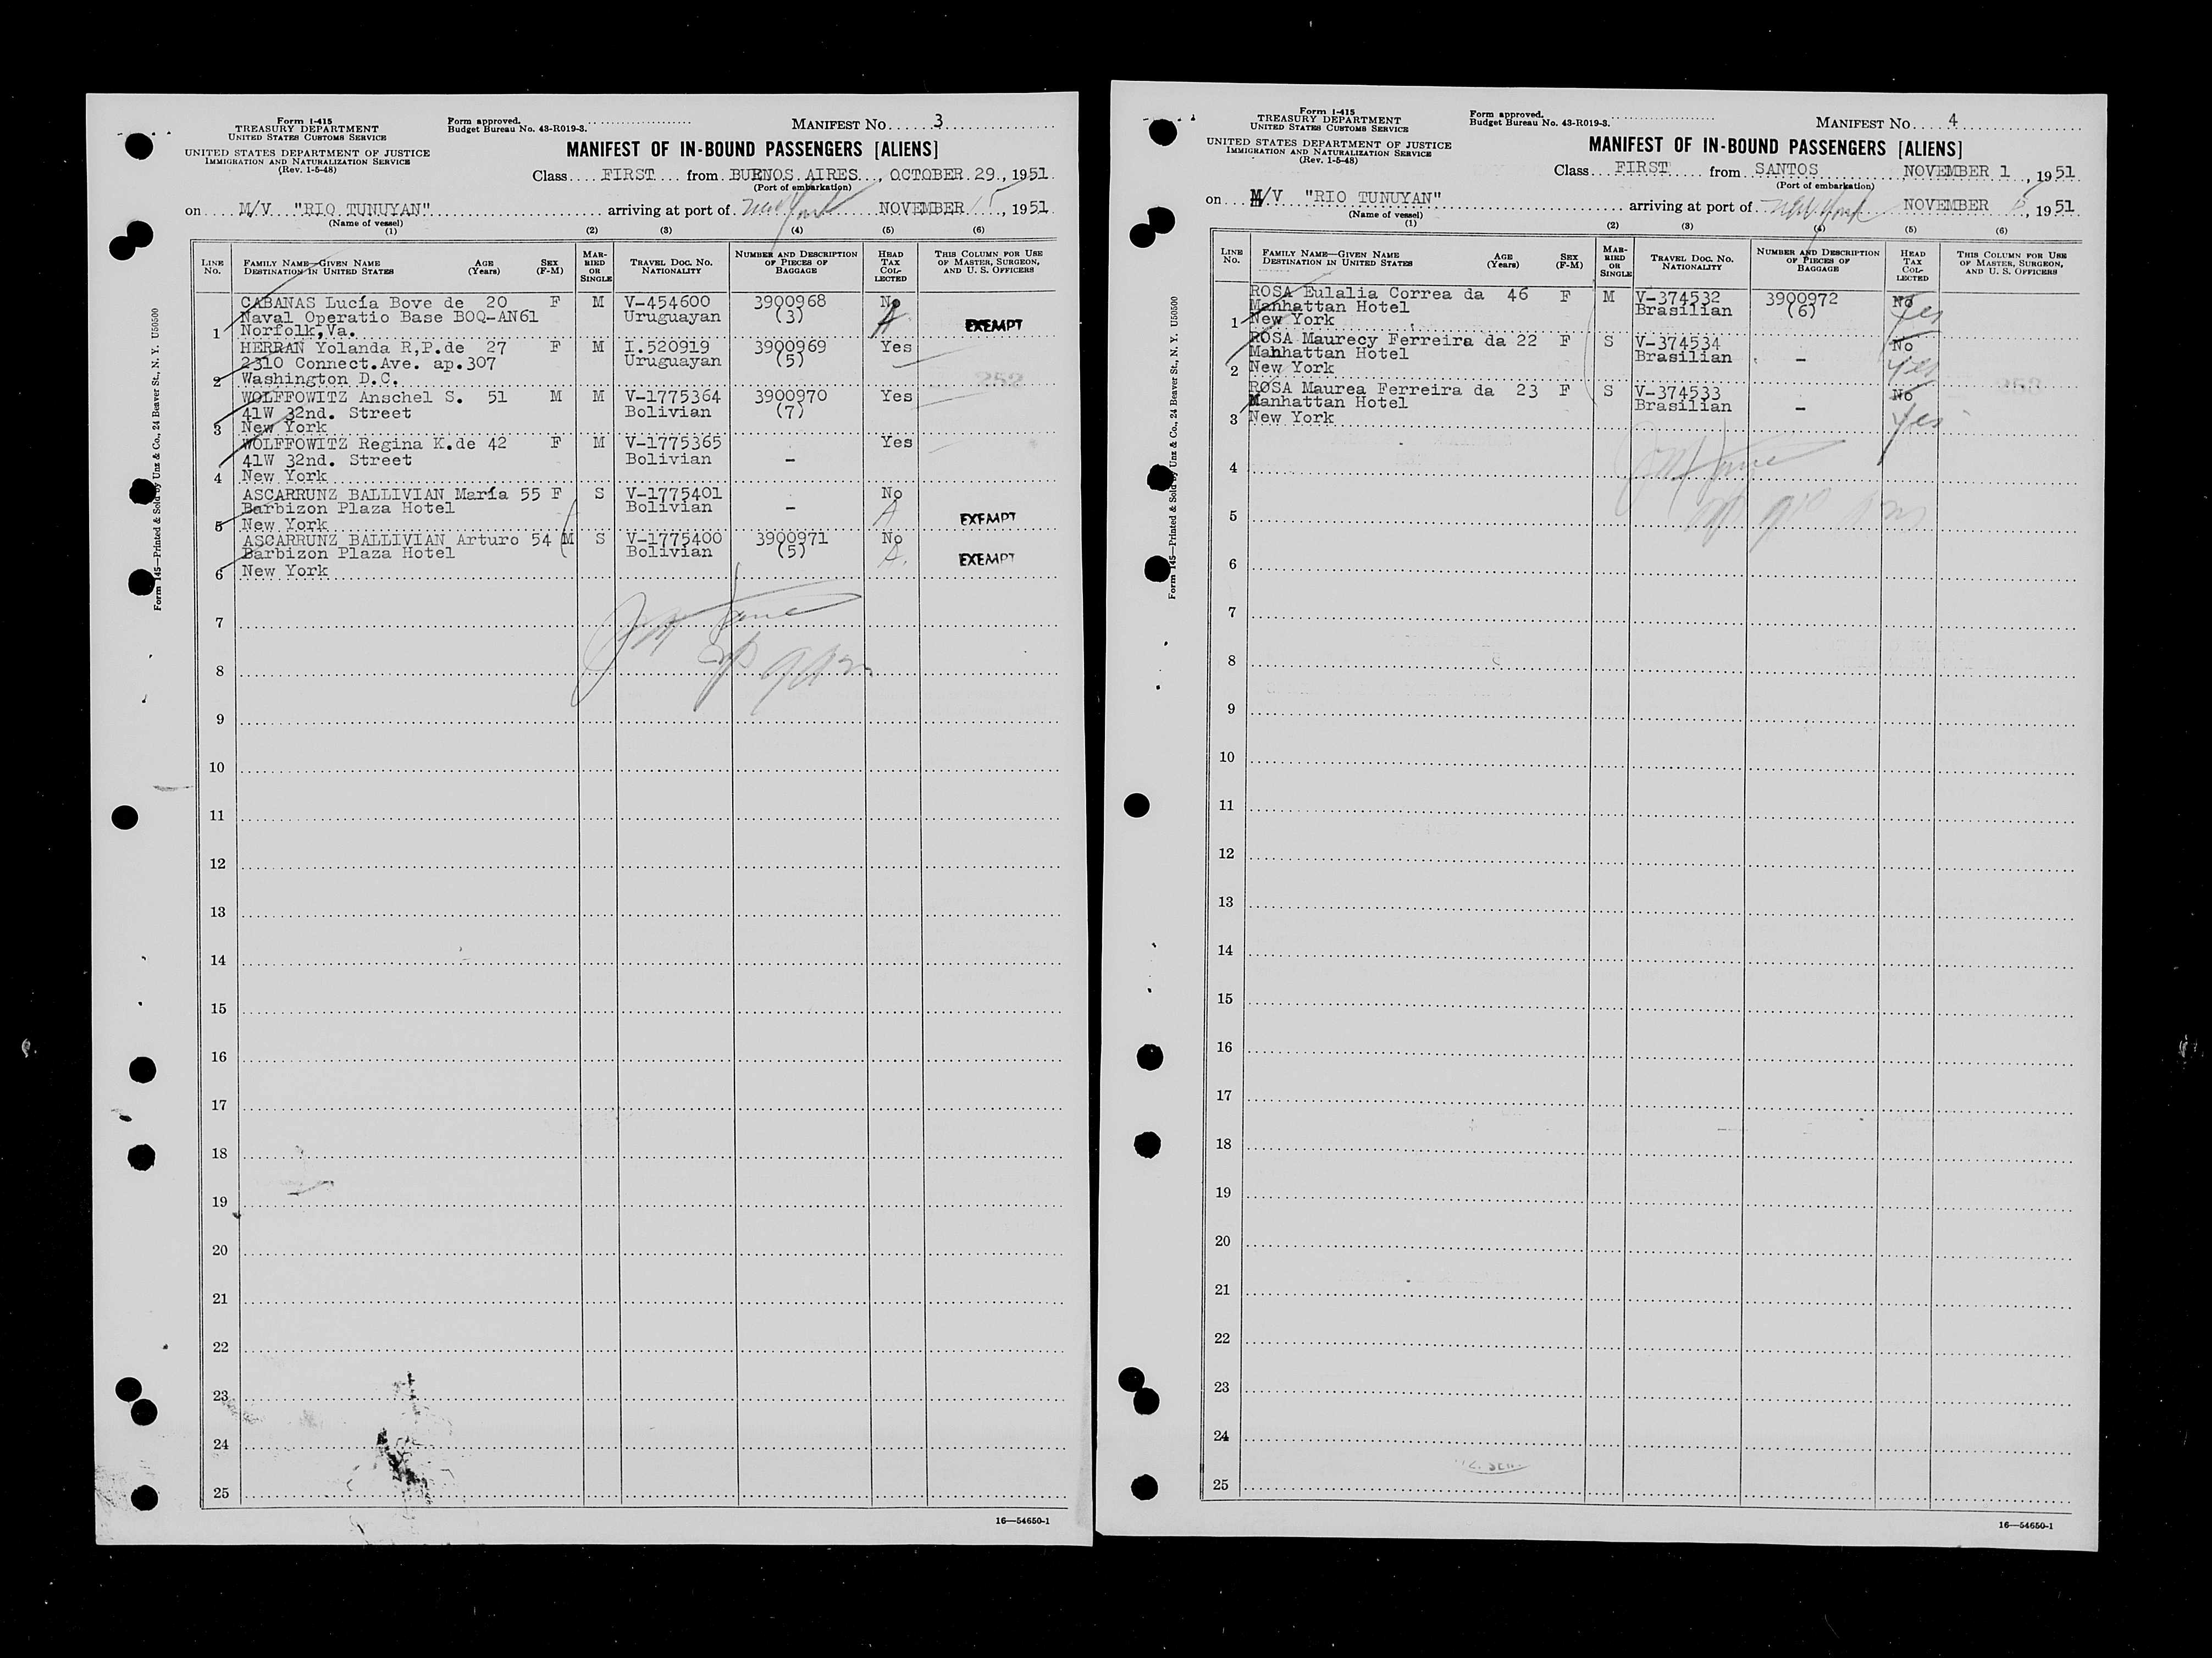 Form I-415
TREASURY DEPARTMENT
UNITED STATES CUSTOMS SERVICE
UNITED STATES DEPARTMENT OF JUSTICE
IMMIGRATION AND NATURALIZATION SERVICE
(Rev. 1-5-48)
Form approved.
Budget Bureau No. 43-R019-3.
MANIFEST NO. 3
MANIFEST OF IN-BOUND PASSENGERS [ALIENS]
Class FIRST from BUENOS AIRES, OCTOBER 29, 1951
(Port of embarkation)
on M/V "RIO TUNUYAN" arriving at port of New York NOVEMBER 15, 1951
(Name of vessel)
(1) (2) (3) (4) (5) (6)
LINE No. FAMILY NAME—GIVEN NAME DESTINATION IN UNITED STATES AGE (Years) SEX (F-M) MARRIED OR SINGLE TRAVEL DOC. NO. NATIONALITY NUMBER AND DESCRIPTION OF PIECES OF BAGGAGE HEAD TAX COLLECTED THIS COLUMN FOR USE OF MASTER, SURGEON, AND U. S. OFFICERS
CABANAS Lucía Bove de 20 F M V-454600 3900968 No
Naval Operatio Base BOQ-AN61 Uruguayan (3) A EXEMPT
1 Norfolk,Va.
HERRAN Yolanda R,P.de 27 F M I.520919 3900969 Yes
2310 Connect.Ave. ap.307 Uruguayan (5)
2 Washington D.C.
WOLFFOWITZ Anschel S. 51 M M V-1775364 3900970 Yes
41W 32nd. Street Bolivian (7)
3 New York
WOLFFOWITZ Regina K.de 42 F M V-1775365 Yes
41W 32nd. Street Bolivian -
4 New York
ASCARRUNZ BALLIVIAN María 55 F S V-1775401 No
Barbizon Plaza Hotel Bolivian - A
5 New York EXEMPT
ASCARRUNZ BALLIVIAN Arturo 54 M S V-1775400 3900971 No
Barbizon Plaza Hotel Bolivian (5) A. EXEMPT
6 New York
7
8
9
10
11
12
13
14
15
16
17
18
19
20
21
22
23
24
25
16—54650-1
Form 145—Printed & Sold by Unz & Co., 24 Beaver St., N. Y. U50500
Form I-415
TREASURY DEPARTMENT
UNITED STATES CUSTOMS SERVICE
UNITED STATES DEPARTMENT OF JUSTICE
IMMIGRATION AND NATURALIZATION SERVICE
(Rev. 1-5-48)
Form approved.
Budget Bureau No. 43-R019-3.
MANIFEST NO. 4
MANIFEST OF IN-BOUND PASSENGERS [ALIENS]
Class FIRST from SANTOS, NOVEMBER 1, 1951
(Port of embarkation)
on M/V "RIO TUNUYAN" arriving at port of New York NOVEMBER 15, 1951
(Name of vessel)
(1) (2) (3) (4) (5) (6)
LINE No. FAMILY NAME—GIVEN NAME DESTINATION IN UNITED STATES AGE (Years) SEX (F-M) MARRIED OR SINGLE TRAVEL DOC. NO. NATIONALITY NUMBER AND DESCRIPTION OF PIECES OF BAGGAGE HEAD TAX COLLECTED THIS COLUMN FOR USE OF MASTER, SURGEON, AND U. S. OFFICERS
ROSA Eulalia Correa da 46 F M V-374532 3900972 No
Manhattan Hotel Brasilian (6) Yes
1 New York
ROSA Maurecy Ferreira da 22 F S V-374534 No
Manhattan Hotel Brasilian - Yes
2 New York
ROSA Maurea Ferreira da 23 F S V-374533 No
Manhattan Hotel Brasilian - Yes
3 New York
4
5
6
7
8
9
10
11
12
13
14
15
16
17
18
19
20
21
22
23
24
25
16—54650-1
Form 145—Printed & Sold by Unz & Co., 24 Beaver St., N. Y. U50500